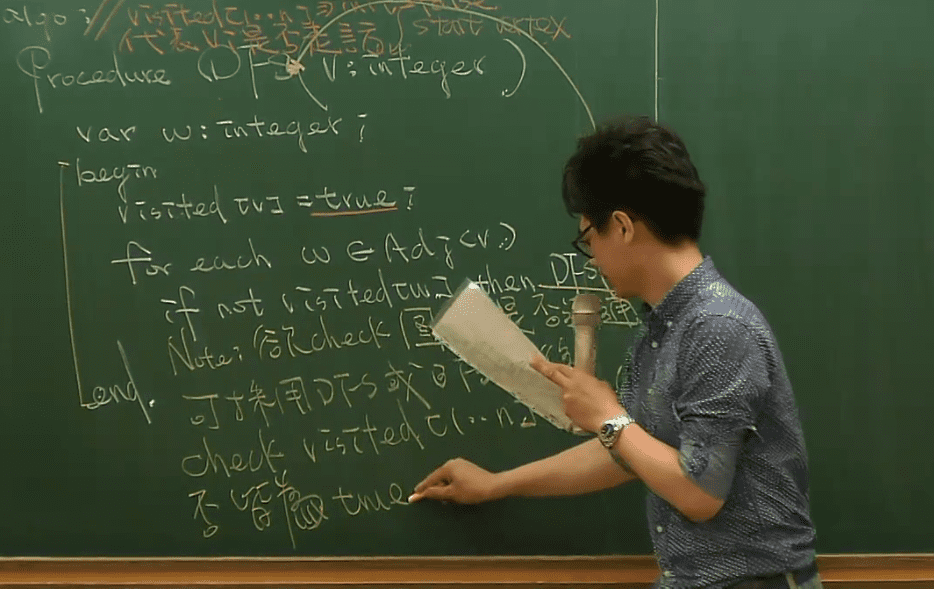 algo: // visited[1..n]
代表Vi是否走訪 start vertex
Procedure (DFS V:integer)
var w:integer;
begin
visited[v] = true;
for each w ∈ Adj(v)
if not visited[w] then DFS
Note: 欲check 圖是否連通
可採用DFS或B
check visited[1..n]
否皆為true
end.